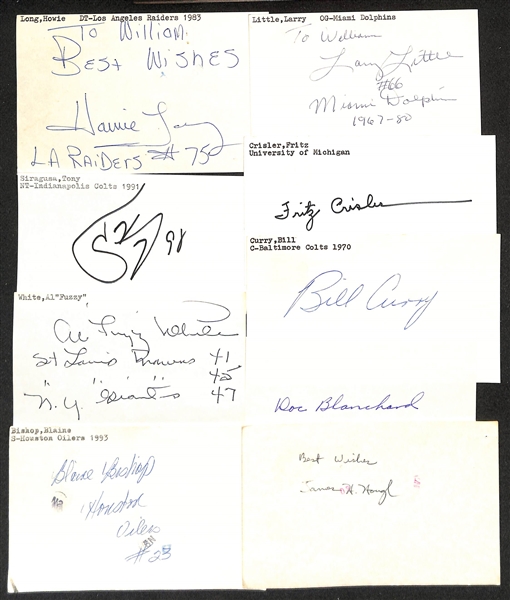 Long,Howie   DT-Los Angeles Raiders 1983
To William
Best Wishes
Howie Long
LA RAIDERS #75
Little,Larry   OG-Miami Dolphins
To William
Larry Little
#66
Miami Dolphins
1967-80
Siragusa,Tony
NT-Indianapolis Colts 1991
98
Crisler,Fritz
University of Michigan
Fritz Crisler
White,Al"Fuzzy"
Al Fuzzy White
St Louis Browns 41
" " " 45
N.Y. Giants 47
Curry,Bill
C-Baltimore Colts 1970
Bill Curry
Doc Blanchard
Bishop,Blaine
S-Houston Oilers 1993
Blaine Bishop
Houston
Oilers
#23
Best Wishes
James H.